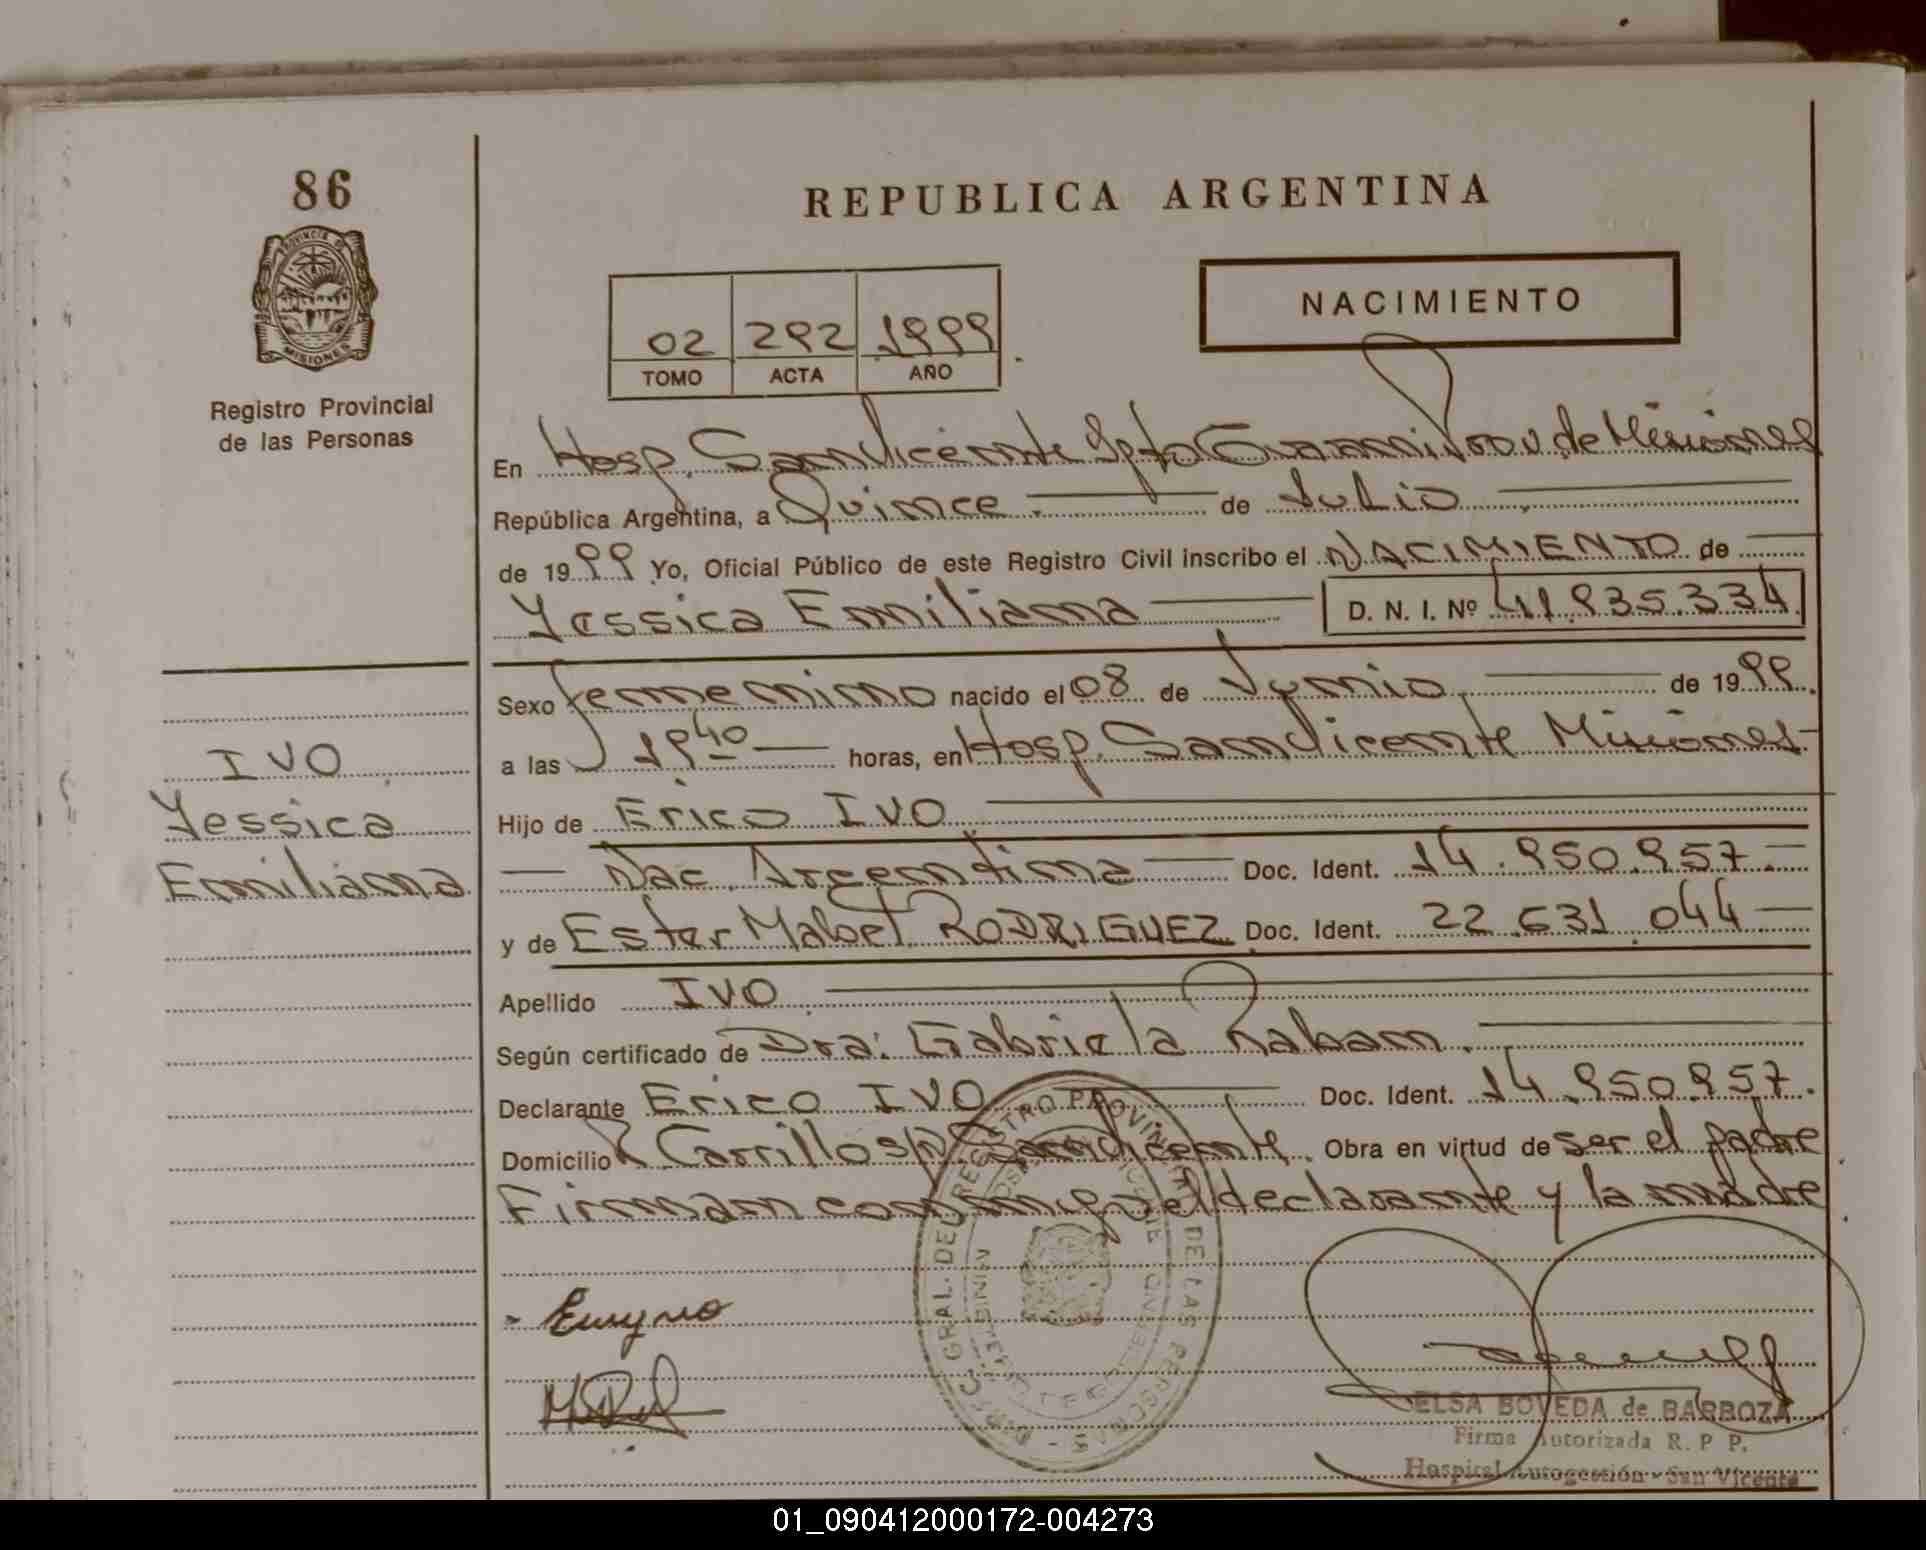 86
PROVINCIA DE
MISIONES
Registro Provincial
de las Personas
REPUBLICA ARGENTINA
NACIMIENTO
02 292 1999
TOMO ACTA AÑO
En Hosp. San Vicente Dpto Guaraní Prov. de Misiones
República Argentina, a Quince de Julio
de 1999 Yo, Oficial Público de este Registro Civil inscribo el NACIMIENTO de
Yessica Emiliana D. N. I. Nº 41.935.334
Sexo femenino nacido el 08 de Junio de 1999.
a las 19 40 horas, en Hosp. San Vicente Misiones-
Hijo de Erico IVO
Nac. Argentina Doc. Ident. 14.950.957.
y de Ester Mabel RODRIGUEZ Doc. Ident. 22.631.044
Apellido IVO
Según certificado de Dra: Gabriela Raban.
Declarante Erico IVO Doc. Ident. 14.950.957.
Domicilio R Carrillo s/n San Vicente. Obra en virtud de ser el padre
Firman conmigo el declarante y la madre
IVO
Yessica
Emiliana
REGISTRO PROVINCIAL DE LAS PERSONAS
ELSA BOVEDA de BARBOZA
Firma Autorizada R. P P.
Hospital Autogestión - San Vicente
01_090412000172-004273